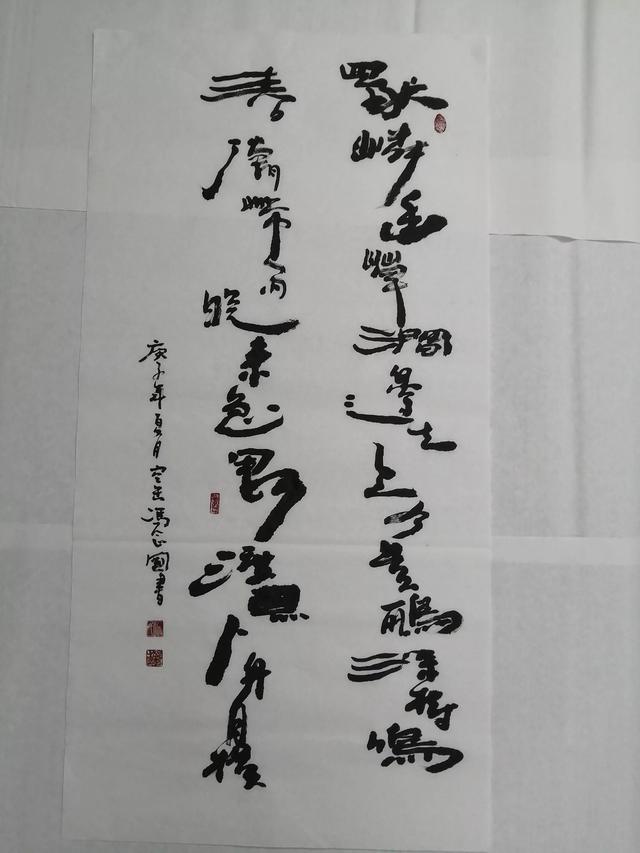 獨憐幽草澗邊生上有黃鸝深樹鳴
春潮帶雨晚来急野渡無人舟自橫
庚子年夏月馮國書